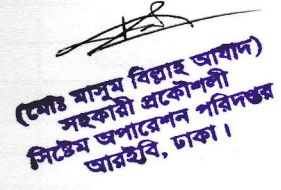 (মোঃ মাসুম বিল্লাহ আযাদ)
সহকারী প্রকৌশলী
সিষ্টেম অপারেশন পরিদপ্তর
আরইবি, ঢাকা।